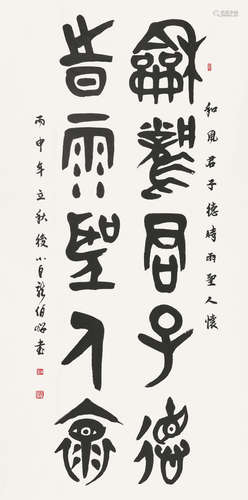 和風君子德時雨聖人懷
龢風君子德
旹雨聖人褱
丙申年立秋後小白龍伯
書